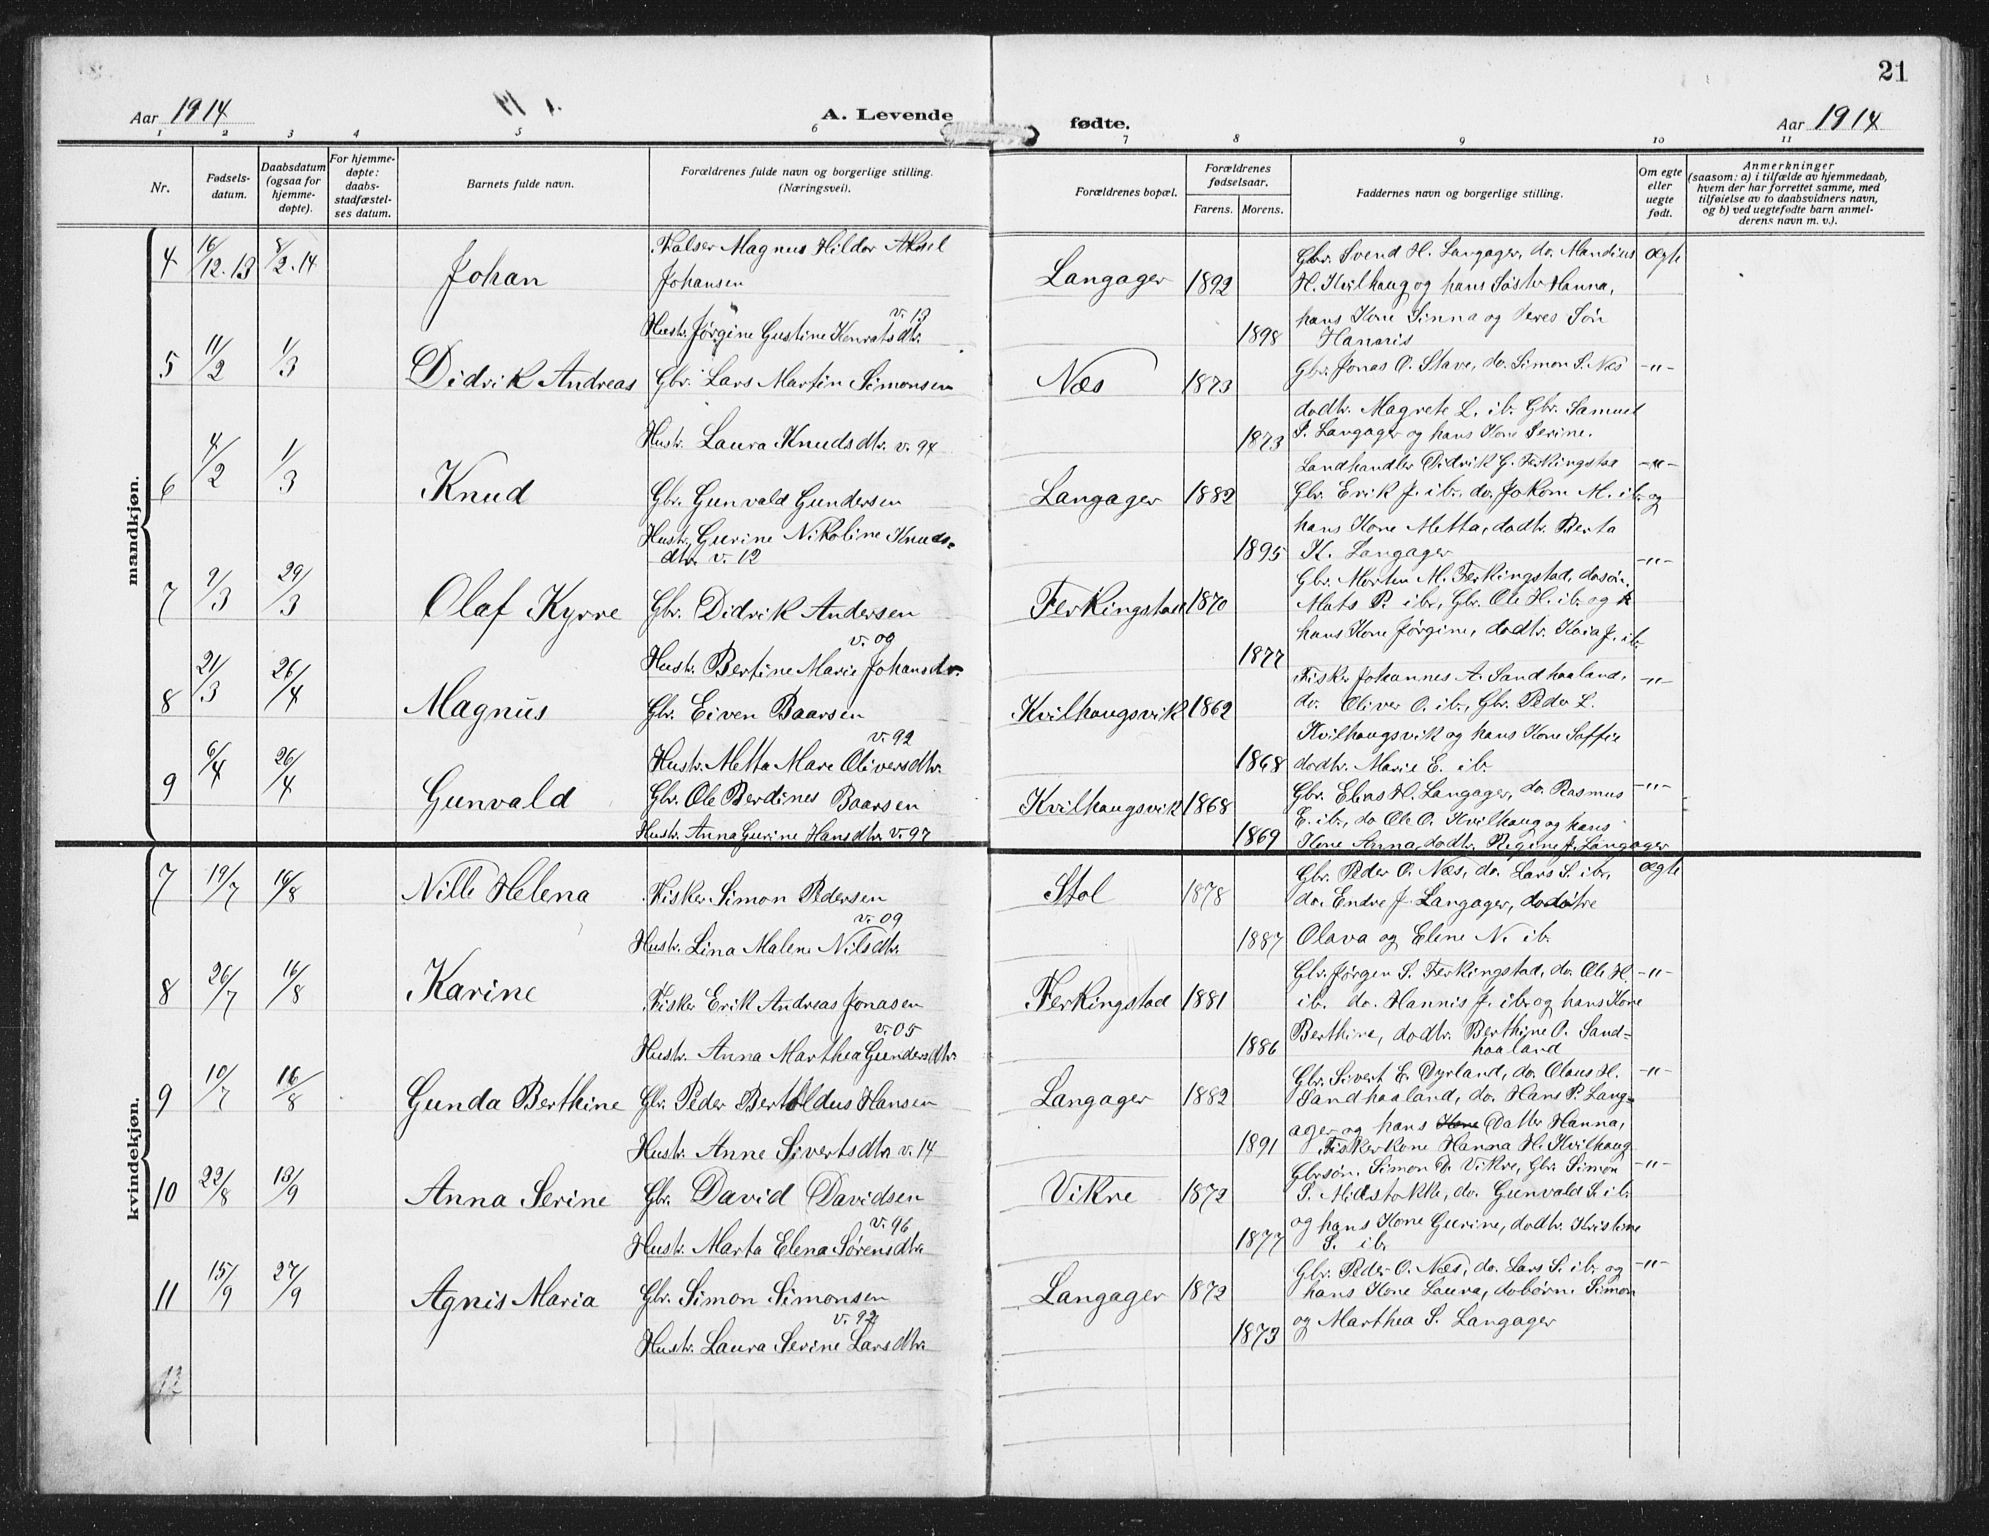 21
Aar 1914
A. Levende
fødte.
Aar 1914
1 2 3 4 5 6 7 8 9 10 11
Nr.
Fødsels-
datum.
Daabsdatum
(ogsaa for
hjemme-
døpte).
For hjemme-
døpte:
daabs-
stadfæstel-
ses datum.
Barnets fulde navn.
Forældrenes fulde navn og borgerlige stilling.
(Næringsvei).
Forældrenes bopæl.
Forældrenes
fødselsaar.
Farens. Morens.
Faddernes navn og borgerlige stilling.
Om egte
eller
uegte
født.
Anmerkninger
(saasom: a) i tilfælde av hjemmedaab,
hvem der har forrettet samme, med
tilføielse av to daabsvidners navn,
og b) ved uegtefødte barn anmel-
derens navn m. v.).
mandkjøn.
4 16/12.13 8/2.14 Johan
Falser Magnus Hildor Aksel
Johansen
v. 13
Hustr. Jørgine Gustine Konratsdtr.
Langager 1892
1898
Gbr. Svend H. Langager, do. Mandius
H. Kvilhaug og hans Søster Hanna,
hans Kone Sinna og deres Søn
Hannis
Ægte
5 11/2 1/3 Didrik Andreas
Gbr. Lars Martin Simonsen
Hustr. Laura Knudsdtr. v. 94
Næs 1873
1873
Gbr. Jonas O. Stave, do. Simon S. Næs
dodtr. Magrete L. ib. Gbr. Samuel
S. Langager og hans Kone Serine.
-"-
6 4/2 1/3 Knud
Gbr. Gunvald Gundersen
Hustr. Gurine Nikoline Knuds-
dtr. v. 12
Langager 1882
1895
Landhandler Didrik G. Ferkingstad
Gbr. Erik J. ib., do. Jokom M. ib. og
hans Kone Metta, dodtr. Berta
K. Langager
-"-
7 9/3 29/3 Olaf Kyrre
Gbr. Didrik Andersen
v. 09
Hustr. Bertine Marie Johansdtr.
Ferkingstad 1870
1877
Gbr. Morten M. Ferkingstad, dosøn.
Mats P. ib., Gbr. Ole H. ib. og
hans Kone Jørgine, dodtr. Kaia J. ib.
-"-
8 21/3 26/4 Magnus
Gbr. Eiven Baarsen
v. 92
Hustr. Metta Mare Oliversdtr.
Kvilhaugsvik 1862
1868
Fisker Johannes A. Sandhaaland,
do. Oliver O. ib., Gbr. Peder L.
Kvilhaugsvik og hans Kone Soffie
dodtr. Marie E. ib.
-"-
9 6/4 26/4 Gunvald
Gbr. Ole Berdines Baarsen
Hustr. Anna Gurine Hansdtr. v. 97
Kvilhaugsvik 1868
1869
Gbr. Elias H. Langager, do. Rasmus
E. ib., do Ole O. Kvilhaug og hans
Kone Anna, dodtr. Regine J. Langager
-"-
kvindekjøn.
7 19/7 16/8 Nille Helena
Fisker Simon Pedersen
v. 09
Hustr. Lina Malene Nilsdtr.
Stol 1878
1887
Gbr. Peder O. Næs, do. Lars S. ib.,
do. Endre J. Langager, dodøtre
Olava og Elene N. ib.
Ægte
8 26/7 16/8 Karine
Fisker Erik Andreas Jonasen
v. 05
Hustr. Anna Marthea Gundersdtr.
Ferkingstad 1881
1886
Gbr. Jørgen S. Ferkingstad, do. Ole H.
ib. do. Hannis J. ib. og hans Kone
Berthine, dodtr. Berthine O. Sand-
haaland
-"-
9 10/7 16/8 Gunda Berthine
Gbr. Peder Bertoldus Hansen
Hustr. Anne Sivertsdtr. v. 14
Langager 1882
1891
Gbr. Sivert E. Syrland, do. Olaus H.
Sandhaaland, do. Hans P. Lang-
ager og hans Kone Datter Hanna,
Fiskerkone Hanna H. Kvilhaug
-"-
10 22/8 13/9 Anna Serine
Gbr. David Davidsen
v. 96
Hustr. Marta Elena Sørensdtr.
Vikre 1872
1877
Gbrsøn. Simon D. Vikre, Gbr. Simon
S. Midstokke, do. Gunvald S. ib.
og hans Kone Gurine, dodtr. Kristine
S. ib.
-"-
11 15/9 27/9 Agnis Maria
Gbr. Simon Simonsen
v. 92
Hustr. Laura Serine Larsdtr.
Langager 1872
1873
Gbr. Peder O. Næs, do. Lars S. ib. og
hans Kone Laura, dobørn Simon
og Marthea S. Langager
-"-
12